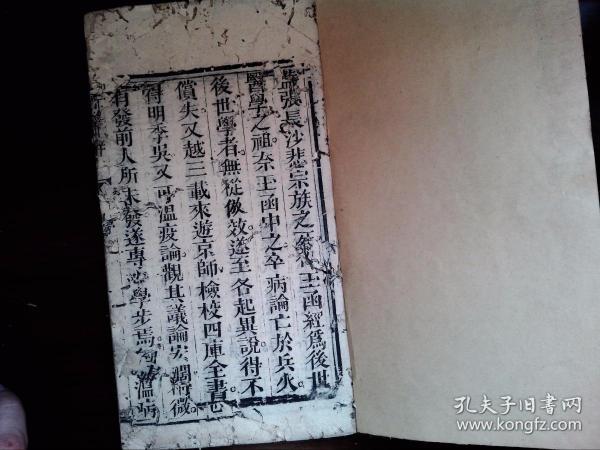 張長沙悲宗族之玉函經爲後世
醫學之祖奈玉函中之卒病論亡於兵火
後世學者無從倣效遂至各起異說得不
償失又越三載來遊京師檢校四庫全書
得明季吳又可溫疫論觀其議論宏濶
有發前人所未發遂專心學步焉溫病
孔夫子旧书网
www.kongfz.com